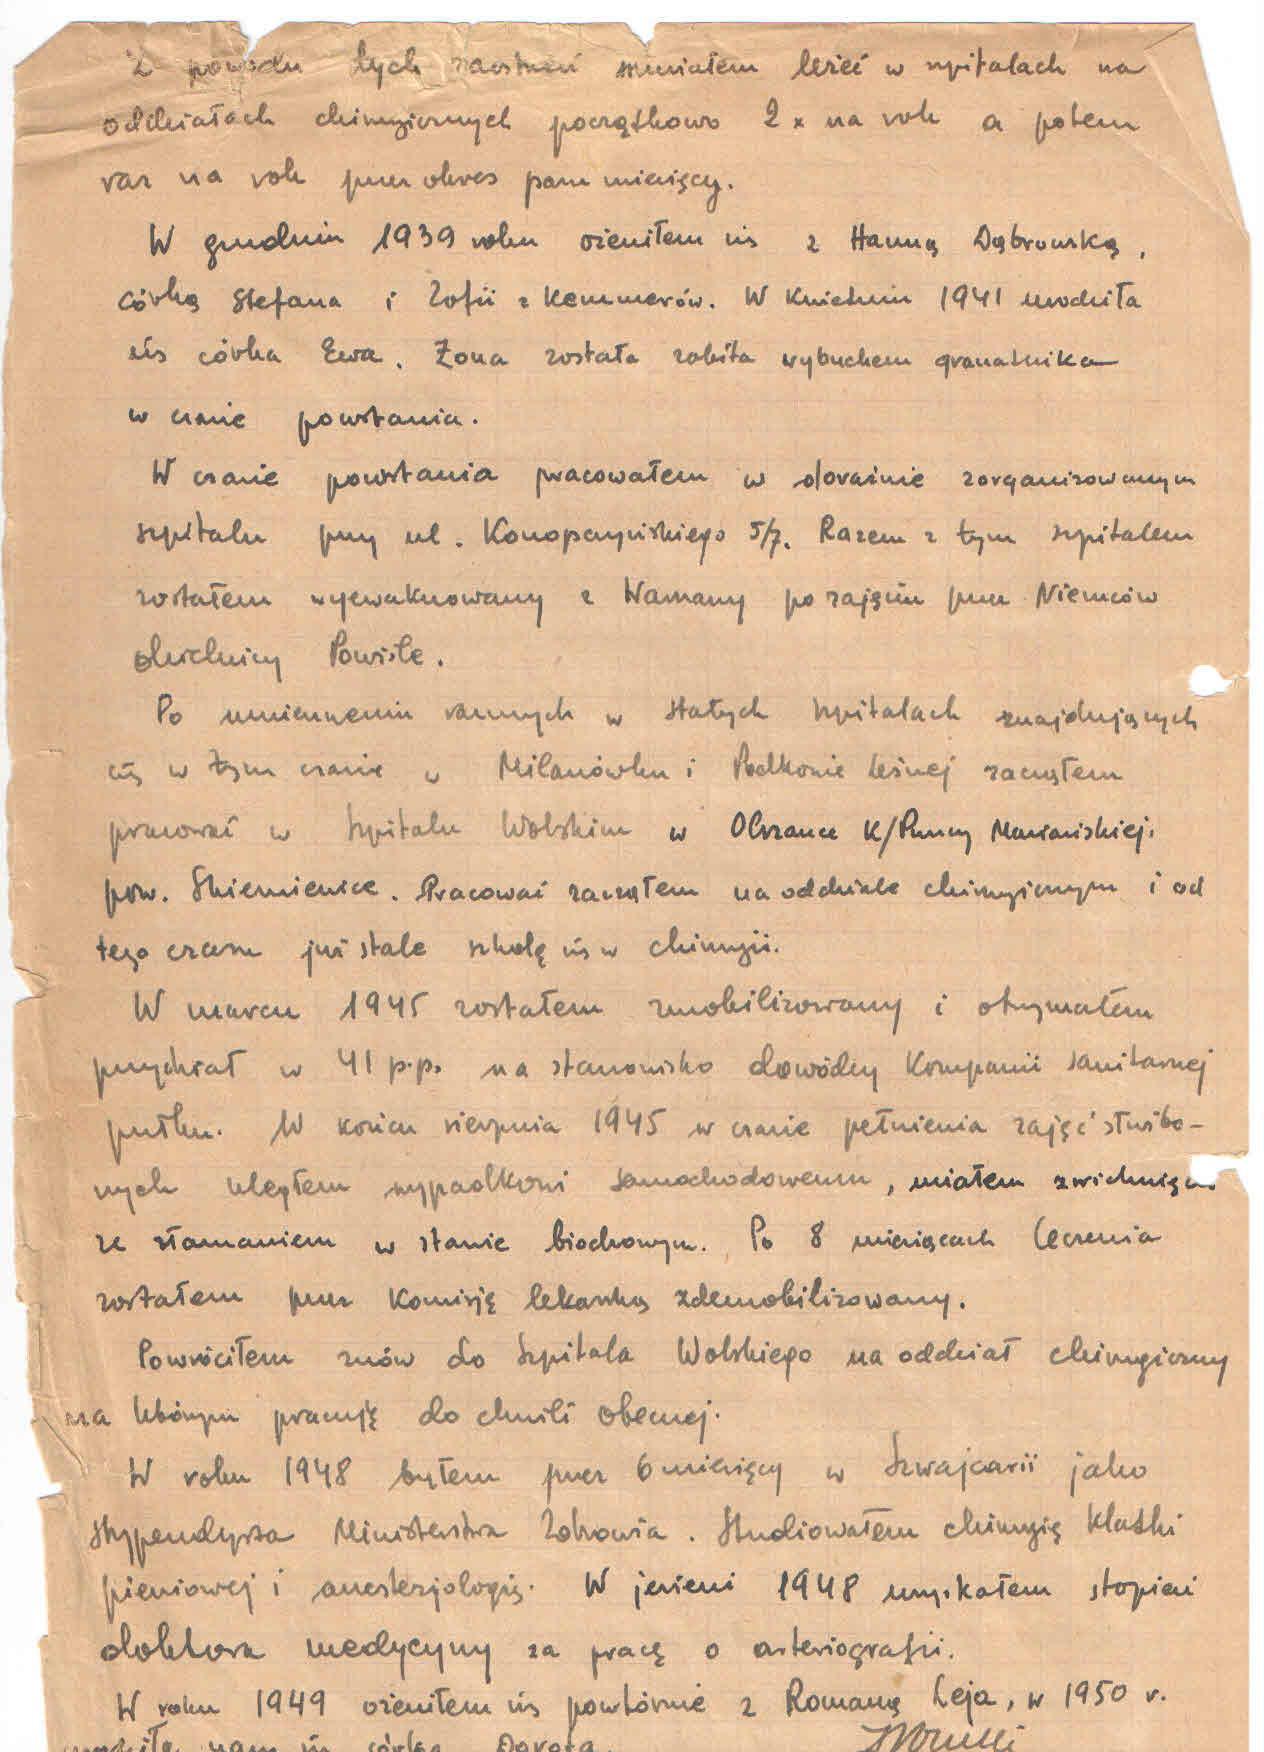 Z powodu tych zaostrzeń musiałem leżeć w szpitalach na
oddziałach chirurgicznych początkowo 2 x na rok a potem
raz na rok przez okres paru miesięcy.
W grudniu 1939 roku ożeniłem się z Hanną Dąbrowską,
córką Stefana i Zofii z Kemmerów. W Kwietniu 1941 urodziła
się córka Ewa. Żona została zabita wybuchem granatnika
w czasie powstania.
W czasie powstania pracowałem w doraźnie zorganizowanym
szpitalu przy ul. Konopczyńskiego 5/7. Razem z tym szpitalem
zostałem wyewakuowany z Warszawy po zajęciu przez Niemców
dzielnicy Powiśle.
Po umieszczeniu rannych w stałych szpitalach znajdujących
się w tym czasie w Milanówku i Podkowie Leśnej zacząłem
pracować w Szpitalu Wolskim w Olszance K/Puszczy Mariańskiej.
pow. Skierniewice. Pracować zacząłem na oddziale chirurgicznym i od
tego czasu już stale szkolę się w chirurgii.
W marcu 1945 zostałem zmobilizowany i otrzymałem
przydział w 41 p.p. na stanowisko dowódcy Kompanii sanitarnej
pułku. W końcu sierpnia 1945 w czasie pełnienia zajęć służbo-
wych uległem wypadkowi samochodowemu, miałem
ze złamaniem w stawie biodrowym. Po 8 miesiącach leczenia
zostałem przez Komisję lekarską zdemobilizowany.
Powróciłem znów do Szpitala Wolskiego na oddział chirurgiczny
na którym pracuję do chwili obecnej.
W roku 1948 byłem przez 6 miesięcy w Szwajcarii jako
stypendysta Ministerstwa Zdrowia. Studiowałem chirurgię klatki
piersiowej i anestezjologię. W jesieni 1948 uzyskałem stopień
doktora medycyny za pracę o arteriografii.
W roku 1949 ożeniłem się powtórnie z Romaną Leja, w 1950 r.
urodziła nam się córka Dorota.